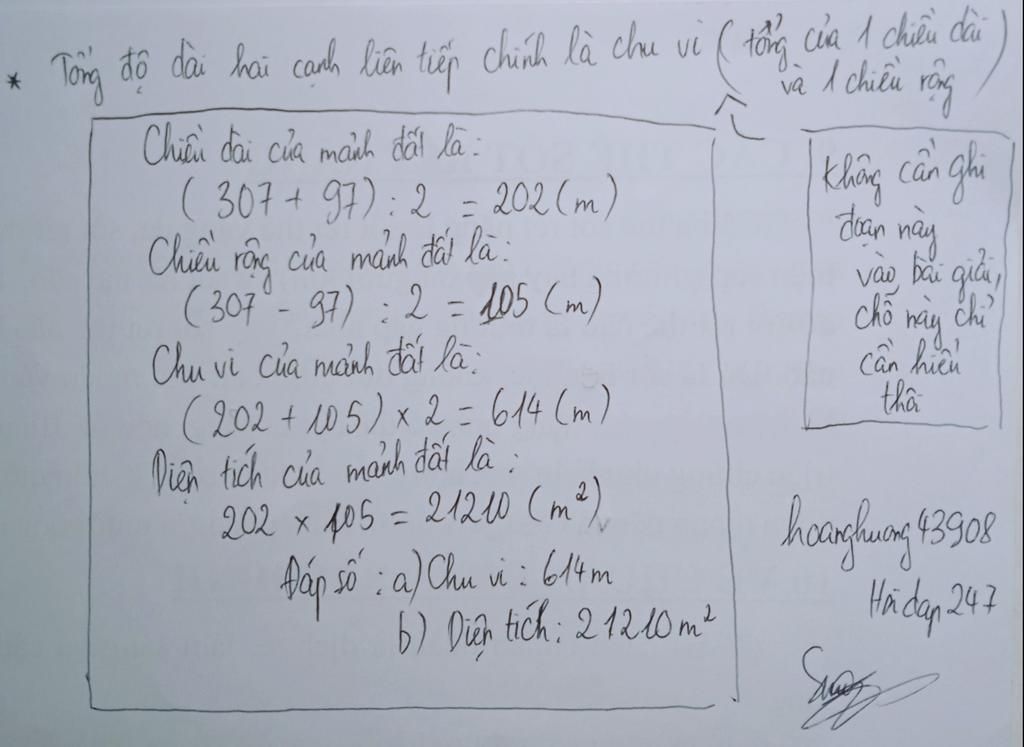 * Tổng độ dài hai cạnh liên tiếp chính là chu vi (tổng của 1 chiều dài
và 1 chiều rộng)
Chiều dài của mảnh đất là:
(307 + 97) : 2 = 202 (m)
Chiều rộng của mảnh đất là:
(307 - 97) : 2 = 105 (m)
Chu vi của mảnh đất là:
(202 + 105) × 2 = 614 (m)
Diện tích của mảnh đất là:
202 × 105 = 21210 (m²)
Đáp số: a) Chu vi: 614m
b) Diện tích: 21210m²
Không cần ghi
đoạn này
vào bài giải,
chỗ này chỉ
cần hiểu
thôi
hoanghuong43908
Hoidap247